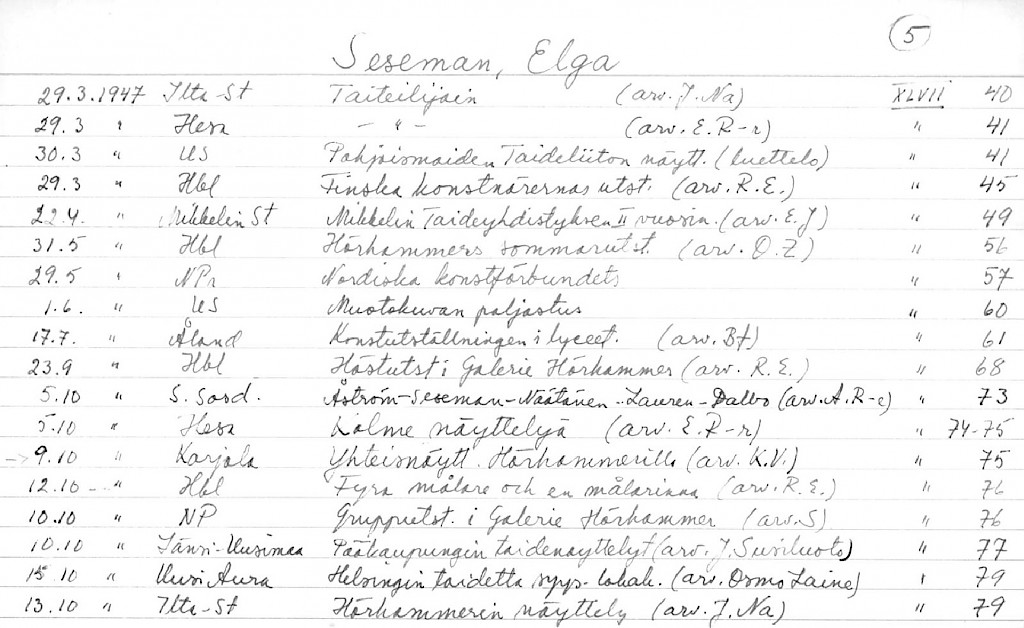 5
Seseman, Elga
29.3.1947 Ilta-St Taiteilijain (arv. J. Na) XLVII 40
29.3 " Hesa - " - (arv. E. R-r) " 41
30.3 " US Pohjoismaiden Taideliiton näytt. (luettelo) " 41
29.3 " Hbl Finska konstnärernas utst. (arv. R.E.) " 45
22.4. " Mikkelin St Mikkelin Taideyhdistyksen II vuosin. (arv. E.J) " 49
31.5 " Hbl Hörhammers sommarutst. (arv. O.Z) " 56
29.5 " NPr Nordiska konstförbundets " 57
1.6. " US Muotokuvan paljastus " 60
17.7. " Åland Konstutställningen i lyceet. (arv. Bf) " 61
23.9 " Hbl Höstutst i Galerie Hörhammer (arv. R.E.) " 68
5.10 " S. Sosd. Åström-Seseman-Näätänen-Lauren-Dalbo (arv. A. R-e) " 73
5.10 " Hesa Kolme näyttelyä (arv. E. R-r) " 74-75
→ 9.10 " Karjala Yhteisnäytt. Hörhammerilla (arv. K.V.) " 75
12.10 - " Hbl Fyra målare och en målarinna (arv. R.E.) " 76
10.10 " NP Grupputst. i Galerie Hörhammer (arv. S) " 76
10.10 " Länsi-Uusimaa Pääkaupungin taidenäyttelyt (arv. J. Susiluoto) " 77
15.10 " Uusi Aura Helsingin taidetta syys-lokak. (arv. Osmo Laine) " 79
13.10 " Ilta-St Hörhammerin näyttely (arv. J. Na) " 79